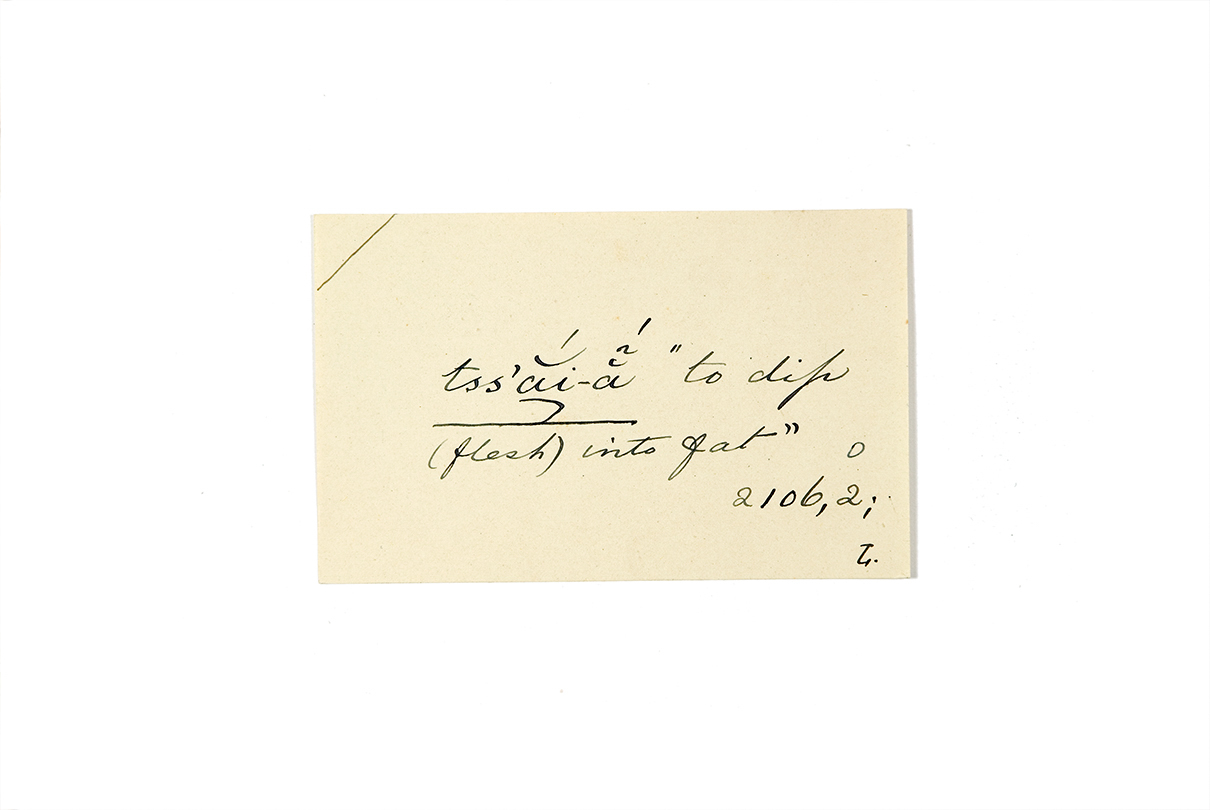 tss'ā̆́i-ā̃̆́ "to dip
(flesh) into fat" o
2106,2;